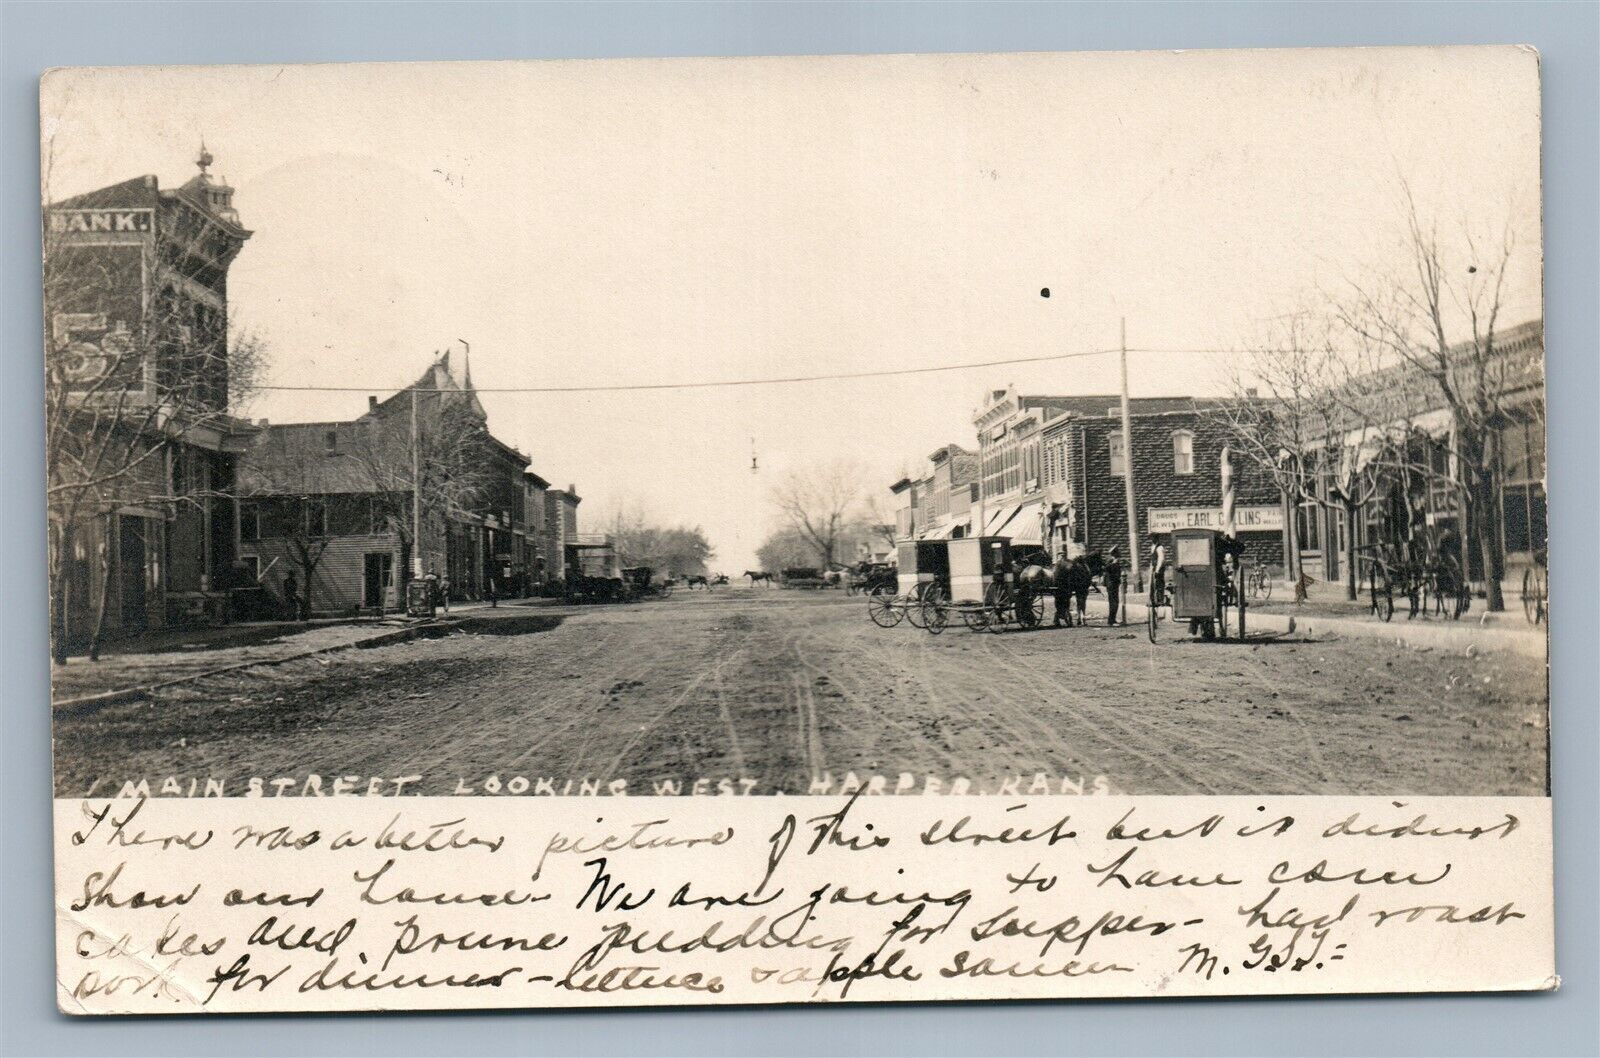 BANK.
5¢
DRUGS
JEWELRY
EARL COLLINS
MAIN STREET. LOOKING WEST. HARPER, KANS.
There was a better picture of this street but it didn't
show our house - We are going to have corn
cakes and prune pudding for supper - had roast
pork for dinner - lettuce & apple sauce M. G. T. -